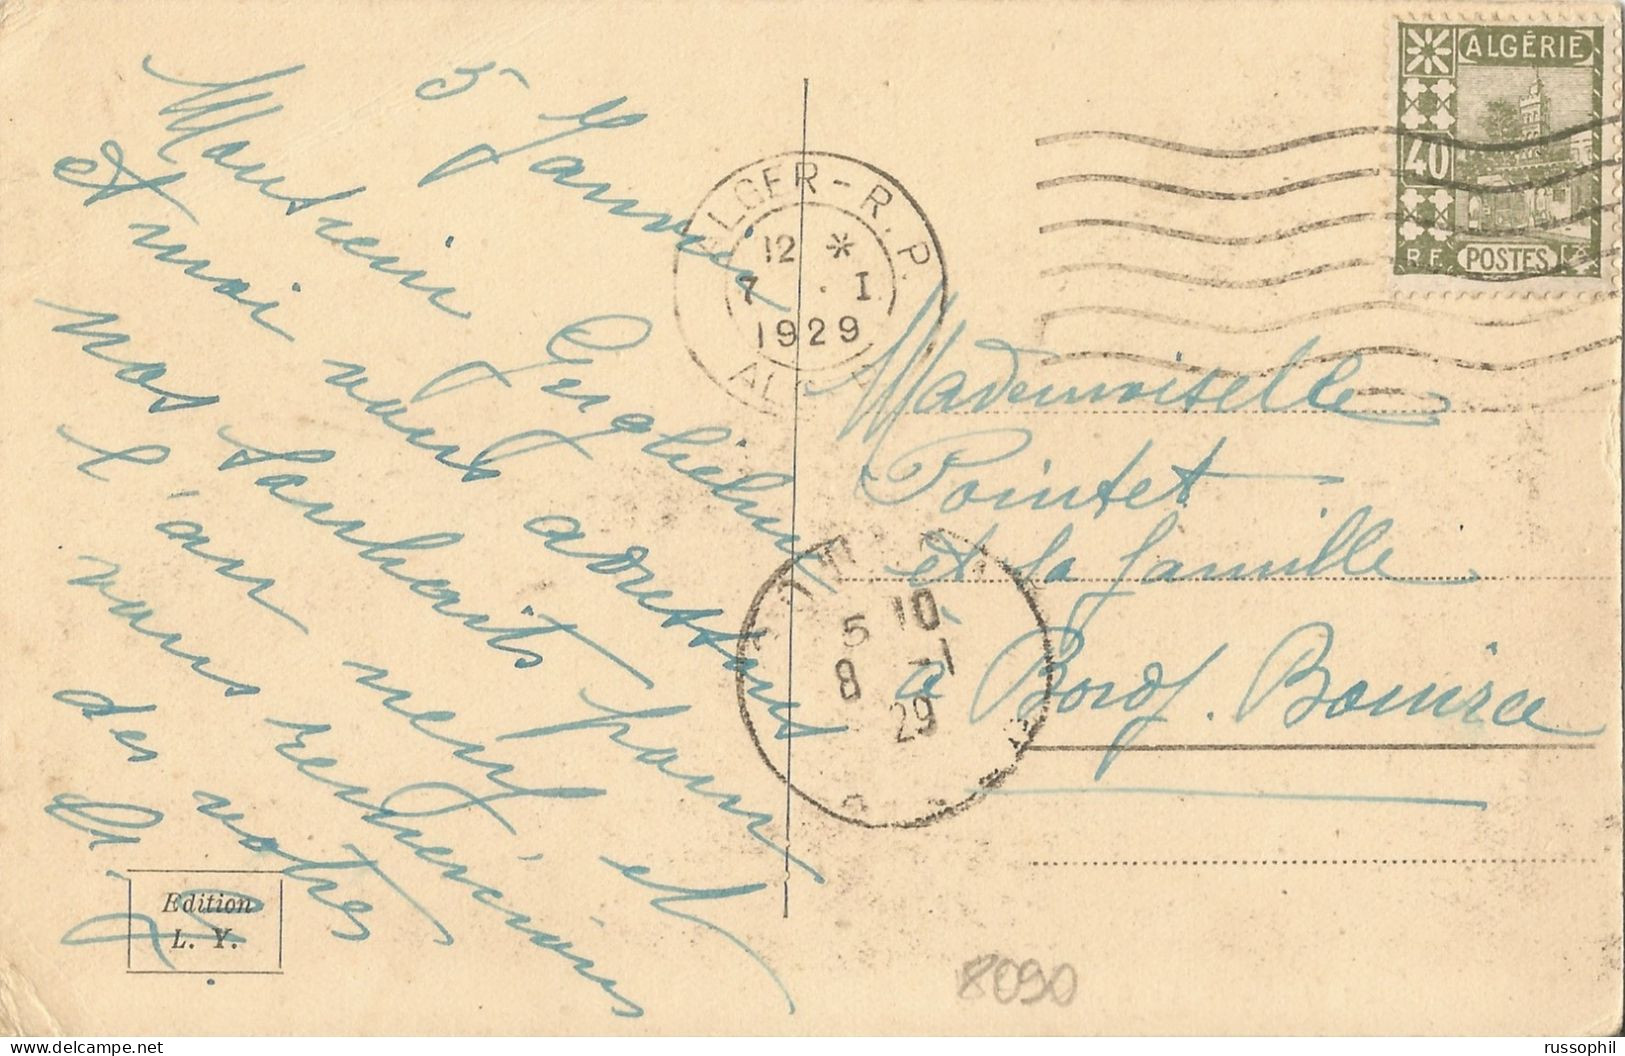 5 Janvier
Monsieur Guglielmi
et moi vous adressons
nos souhaits pour
l'an neuf et
vous remercions
des votres
Edition
L. Y.
ALGER - R. P.
12 *
7 . I
1929
ALGÉRIE
40
R.F. POSTES
Mademoiselle
Pointet
et la famille
à Bordj. Bouira
5 10
8 -1
29
8090
russophil www.delcampe.net